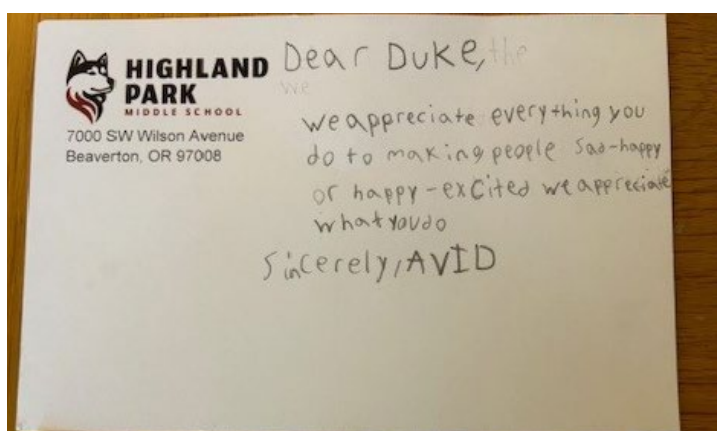 HIGHLAND
PARK
MIDDLE SCHOOL
7000 SW Wilson Avenue
Beaverton, OR 97008
Dear Duke, the
we
we appreciate everything you
do to making people sad-happy
or happy-excited we appreciate
what you do
Sincerely, AVID